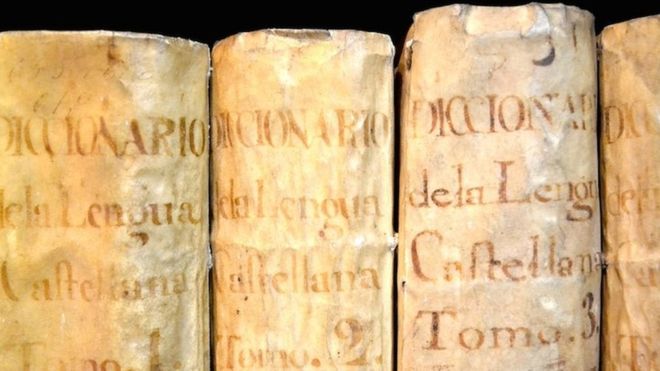 DICCIONARIO
dela Lengua
Caſtellana
Tomo. 1.
DICCIONARIO
dela Lengua
Caſtellana
Tomo. 2.
DICCIONARI
dela Lengu
Caſtellana
Tomo. 3.
DICC
dela
Ca